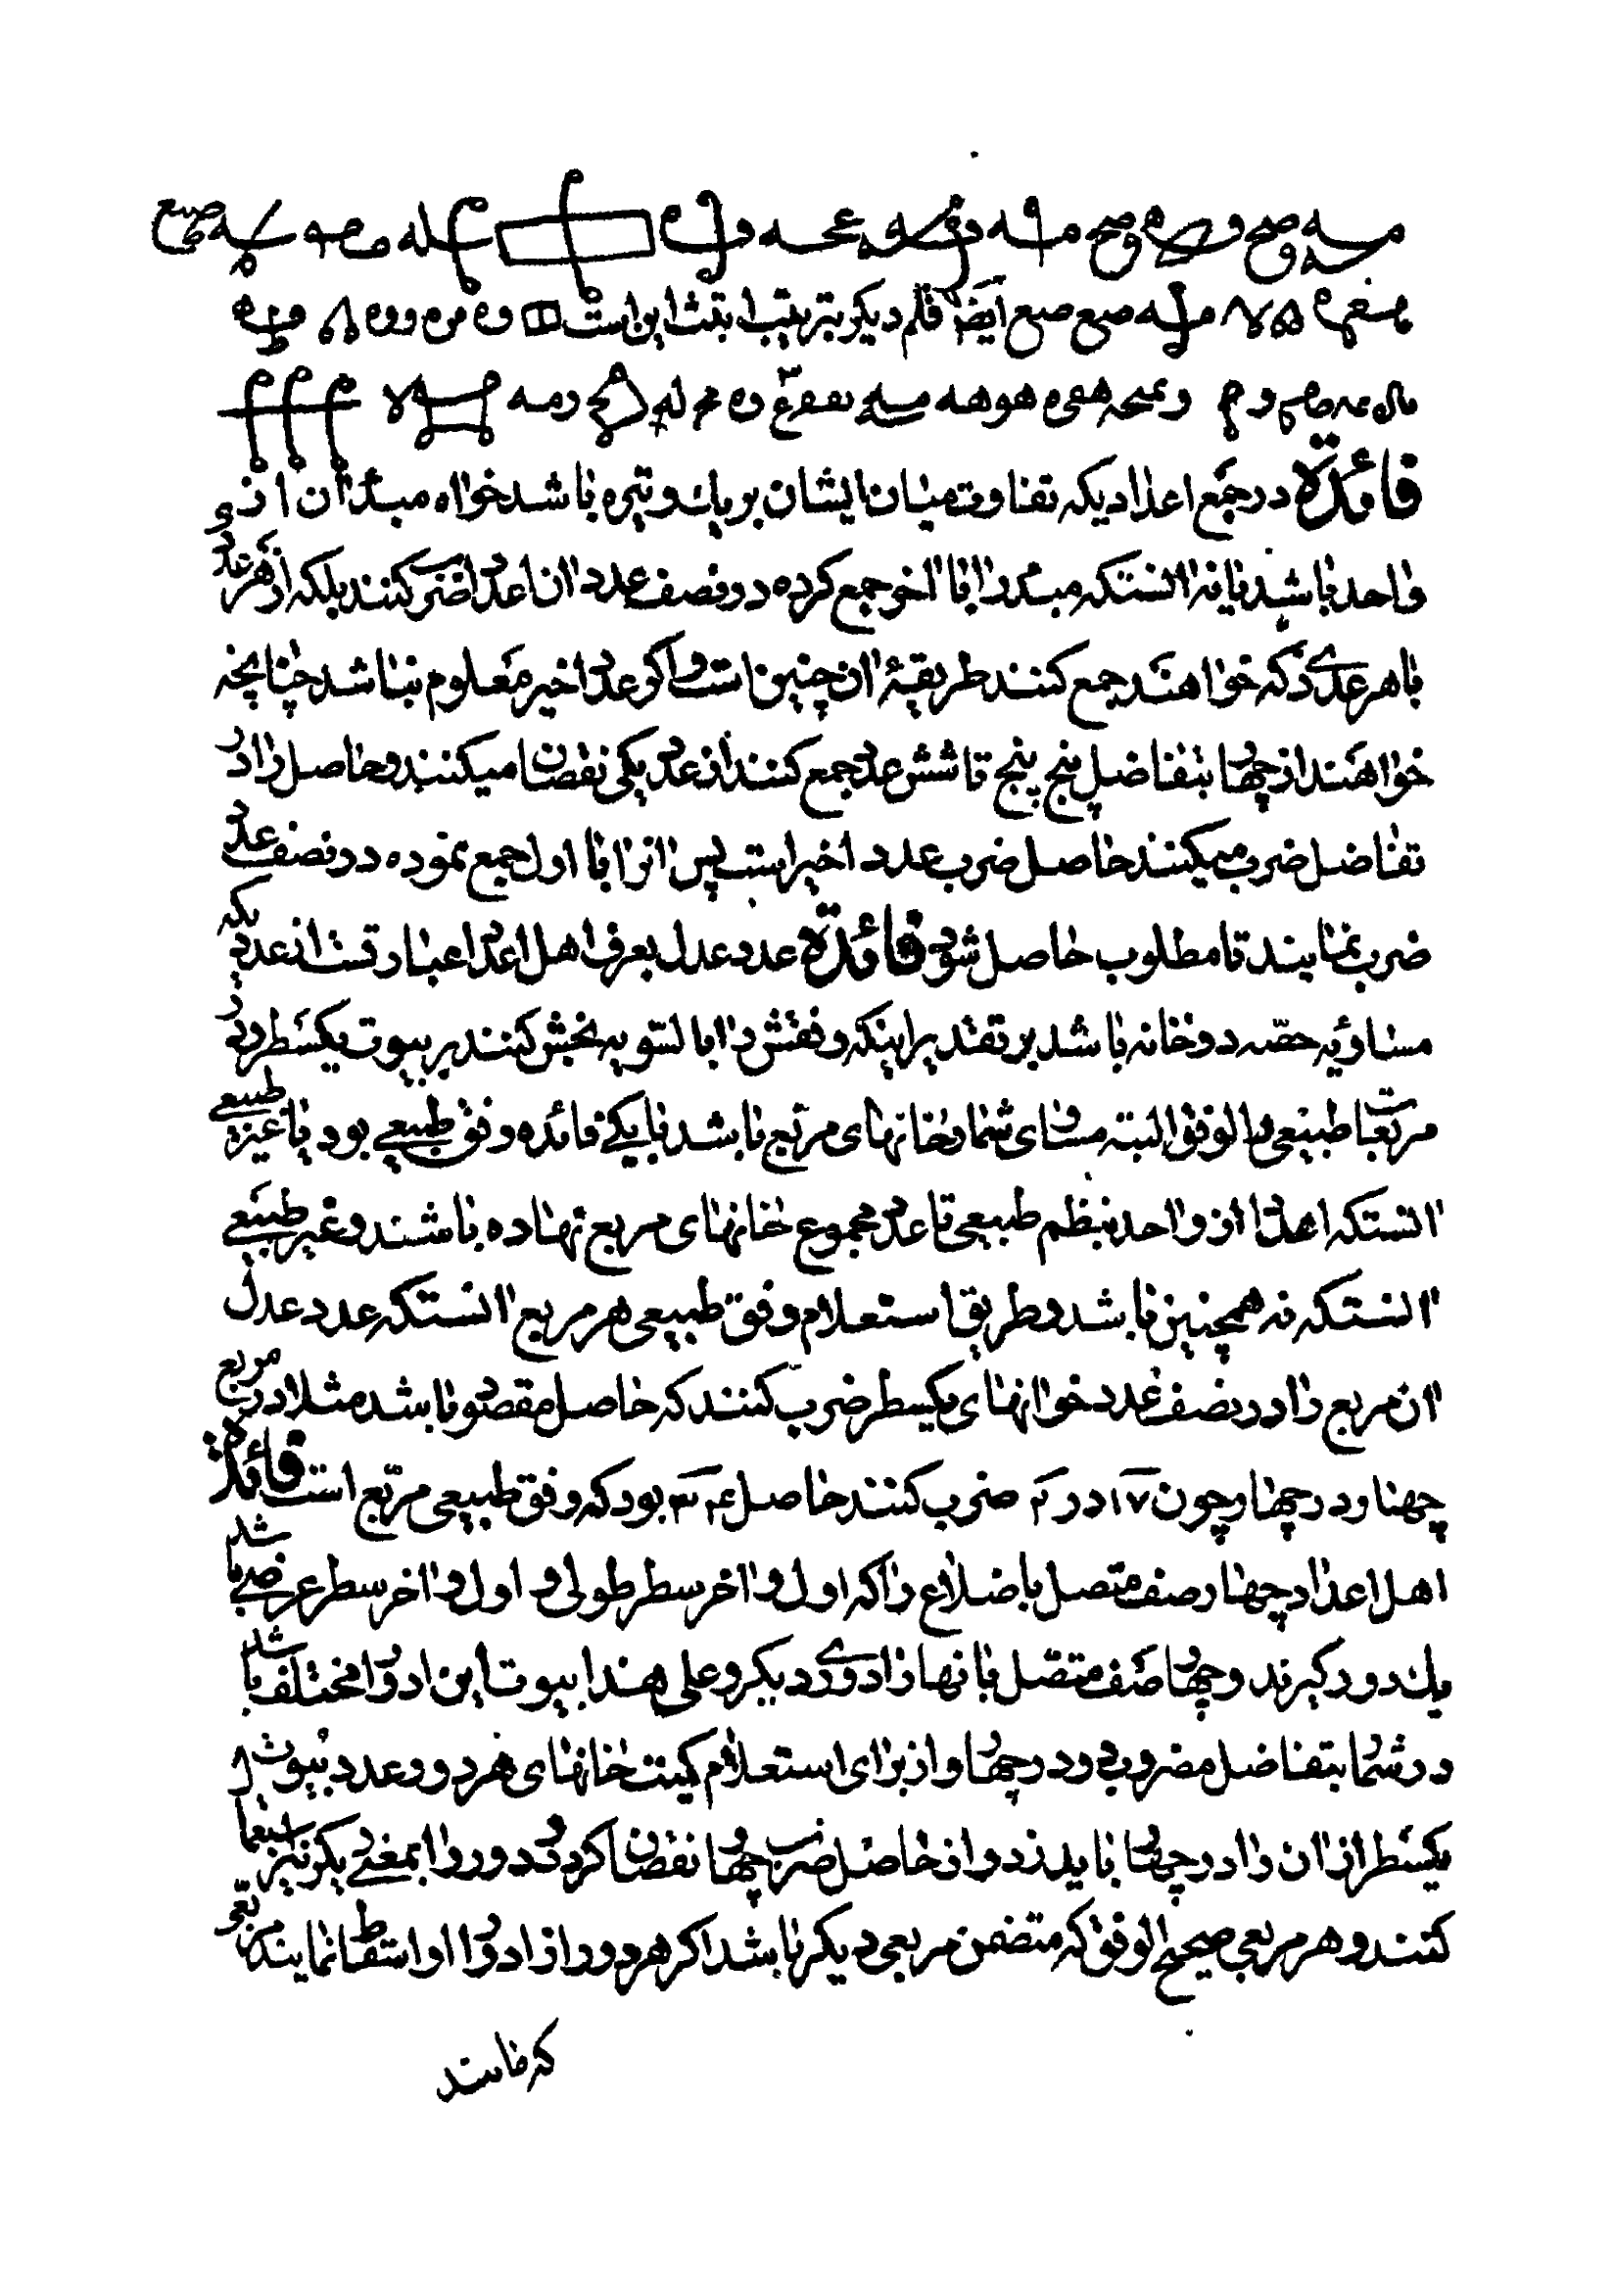 ايضا قلم ديكر بترتيب ابتث اين است
فائدة در جمع اعداديكه تفاوت ميان ايشان بر يك وتيره باشد خواه مبدا ان از
واحد باشد يا نه انستكه مبدء را با اخر جمع كرده در نصف عدد ان اعداد ضرب كنند بلكه از هر عدد
با هر عددى كه خواهند جمع كنند طريقهٔ ان چنين است و اكر عدد اخير معلوم نباشد چنانچه
خواهند از چهار بتفاضل پنج پنج تا شش عدد جمع كنند از عدد يكى نقصان ميكنند و حاصل را در
تفاضل ضرب ميكنند حاصل ضرب عدد اخير است پس انرا با اول جمع نموده در نصف عدد
ضرب نمايند تا مطلوب حاصل شود فائدة عدد عدل بعرف اهل اعداد عبارتست از عدديكه
مساويه حصّه دو خانه باشد بر تقدير اينكه وفقش را بالتسويه بخش كنند بر بيوت يكسطر و در
مربعات طبيعى الوفق البته مساوى شمار خانهاى مربع باشد با يكى فائده وفق طبيعى بود يا غيره طبيعى
انستكه اعداد از واحد بنظم طبيعى تا عدد مجموع خانهاى مربع نهاده باشند و غير طبيعى
انستكه نه همچنين باشد و طريق استعلام وفق طبيعى هر مربع انستكه عدد عدل
ان مربع را در نصف عدد خوانهاى يكسطر ضرب كنند كه حاصل مقصود باشد مثلا در مربع
چهار در چهار چون ۱۷ در ۲ ضرب كنند حاصل ۳۴ بود كه وفق طبيعى مربّع است فائدة
اهل اعداد چهار صف متصل باضلاع را كه اول و اخر سطر طولى و اول و اخر سطر عرضى باشد
يك دور كيرند و چهار صف متصل بانها را دورى ديكر و على هذا بيوت اين ادوار مختلف باشد
در شمار بتفاضل مضروب دو در چهار و از براى استعلام كميت خانهاى هر دور عدد بيوت
يكسطر از ان را در چهار بايد زد و از حاصل ضرب چهار نقصان كرد و دور را بمعنى ديكر نيز استعمال
كنند و هر مربعى صحيح الوفق كه متضمن مربعى ديكر باشد اكر هر دور از ادوار او اسقاط نمايند مربعى
كه مانند